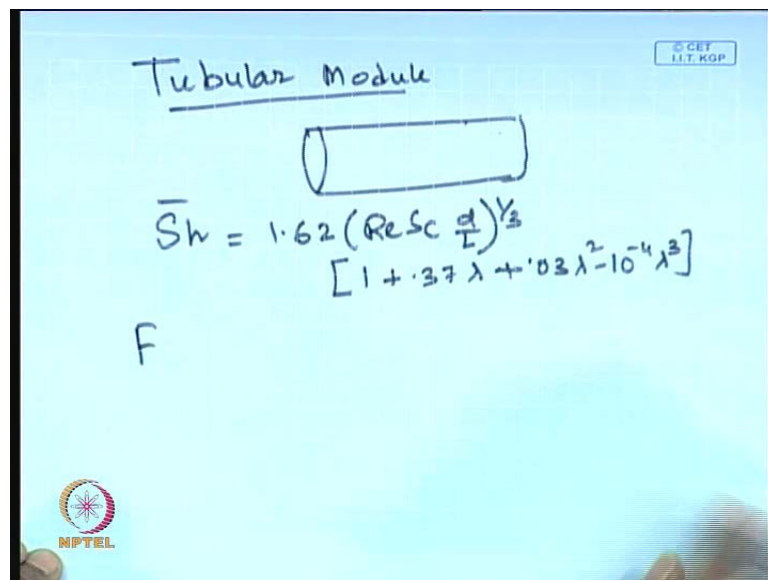 © CET
I.I.T. KGP
Tubular Module
S̅h = 1.62 (Re Sc d/L)^1/3
[1 + .37 λ + .03 λ² - 10⁻⁴ λ³]
F
NPTEL